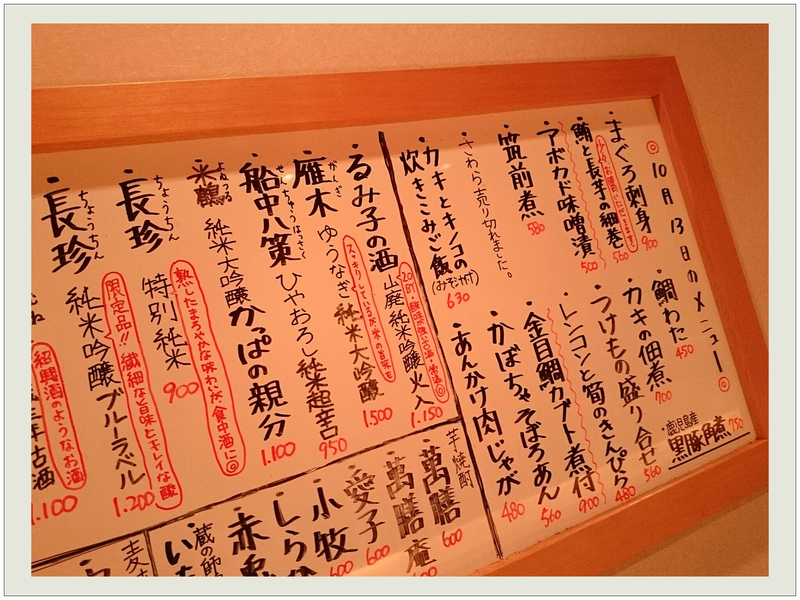 ◎10月13日のメニュー◎
・まぐろ刺身 900
・鮪と長芋の細巻 560
・アボカド味噌漬 500
・筑前煮 580
・さわら売り切れました。
・カキとキノコの
炊きこみご飯(みそ汁付) 630
・鯛わた 450
・カキの佃煮 700
・つけもの盛り合せ 560
・レンコンと筍のきんぴら 480
・金目鯛カブト煮付 900
・かぼちゃそぼろあん 560
・あんかけ肉じゃが 480
鹿児島産
・黒豚角煮 750
・るみ子の酒 山廃純米吟醸火入 1.150
・雁木 ゆうなぎ純米大吟醸 1.500
がんぎ
スッキリしているが米の旨味も
・船中八策 ひやおろし純米超辛口 950
せんちゅうはっさく
・米鶴 純米大吟醸かっぱの親分 1.100
よねつる
・長珍 特別純米 900
ちょうちん
熟したまろやかな味わいが食中酒に◎
・長珍 純米吟醸ブルーラベル 1.200
ちょうちん
限定品!!繊細な旨味とキレイな酸
紹興酒のようなお酒
年古酒 1.100
芋焼酎
・萬膳 600
・萬膳庵
・愛子 600
・小牧 600
・しらか
・赤兎
蔵の師